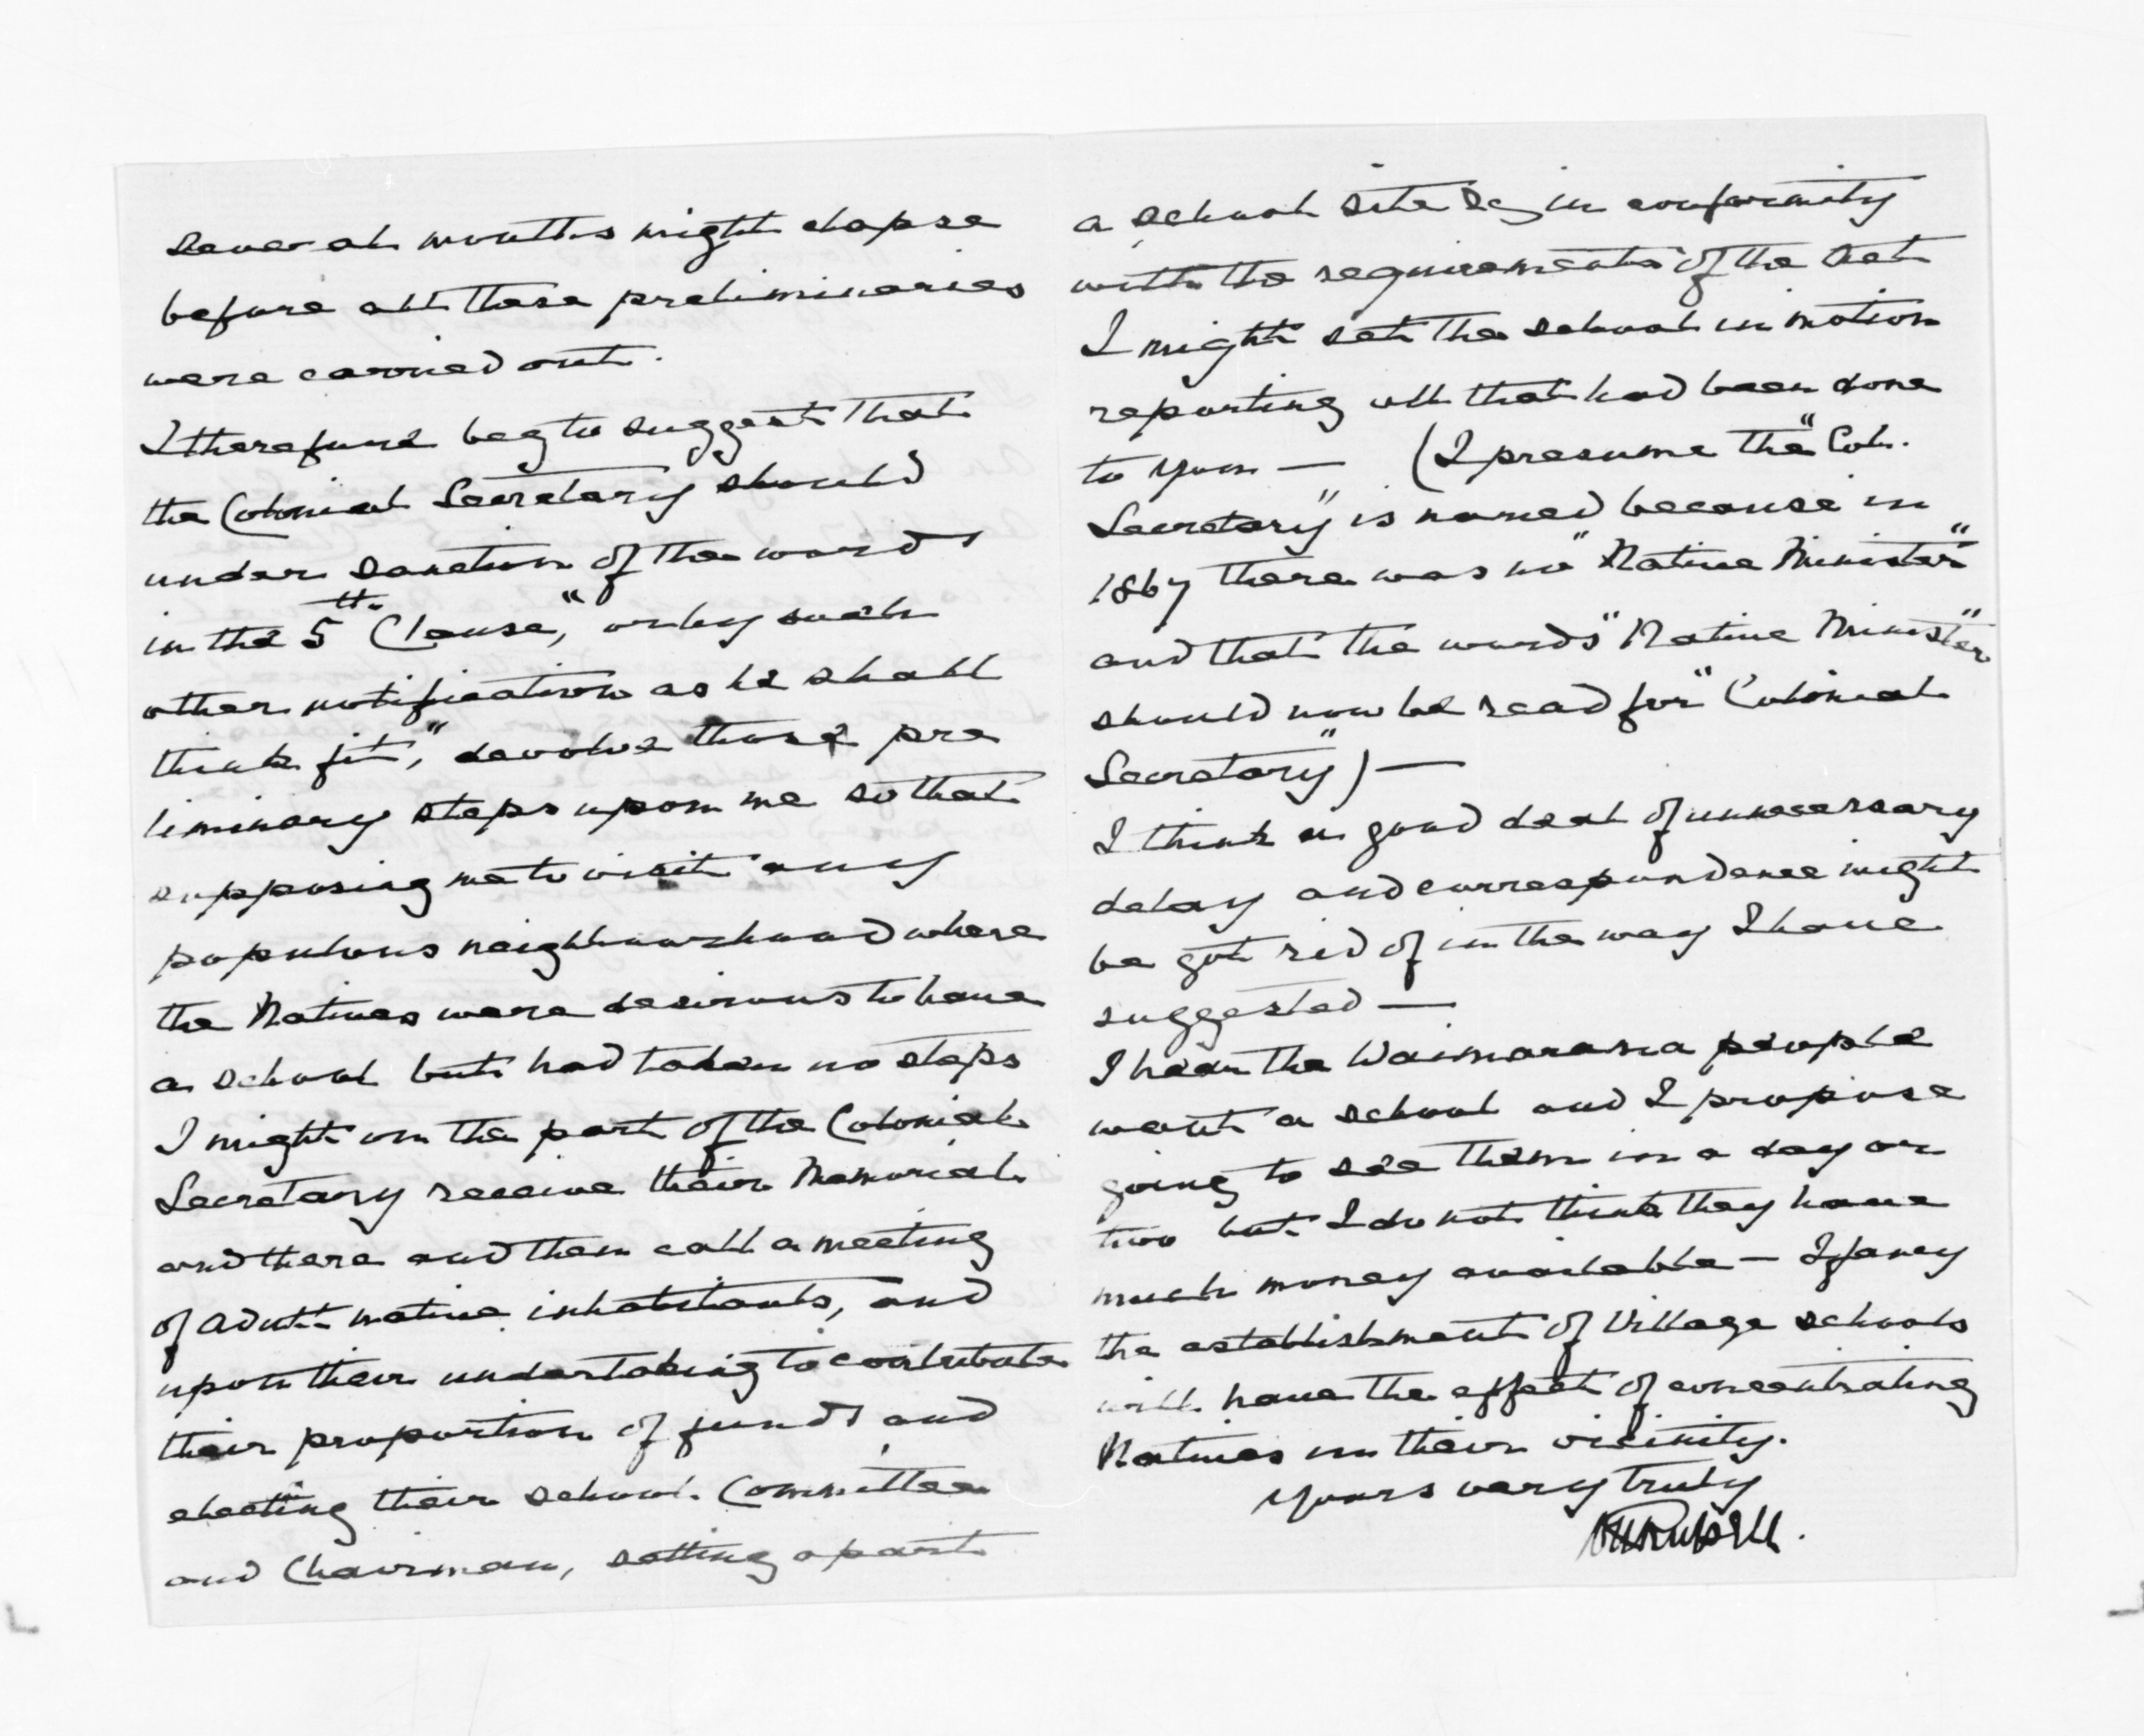 several months might elapse
before all these preliminaries
were carried out.
I therefore beg to suggest that
the Colonial Secretary should
under sanction of the words
in the 5th Clause, "or by such
other notification as he shall
think fit," devolve those pre
liminary steps upon me so that
supposing me to visit any
populous neighbourhood where
the Natives were desirous to have
a school but had taken no steps
I might on the part of the Colonial
Secretary receive their Memorial
and there and then call a meeting
of adult native inhabitants, and
upon their undertaking to contribute
their proportion of funds and
electing their school Committee
and Chairman, setting apart
a school site &c in conformity
with the requirements of the Act
I might set the school in motion
reporting all that had been done
to you — (I presume the "Col.
Secretary" is named because in
1867 there was no "Native Minister"
and that the words "Native Minister"
should now be read for "Colonial
Secretary") —
I think a good deal of unnecessary
delay and correspondence might
be got rid of in the way I have
suggested —
I hear the Waimarama people
want a school and I propose
going to see them in a day or
two but I do not think they have
much money available — I fancy
the establishment of Village schools
will have the effect of concentrating
Natives in their vicinity.
Yours very truly
HRRussell.